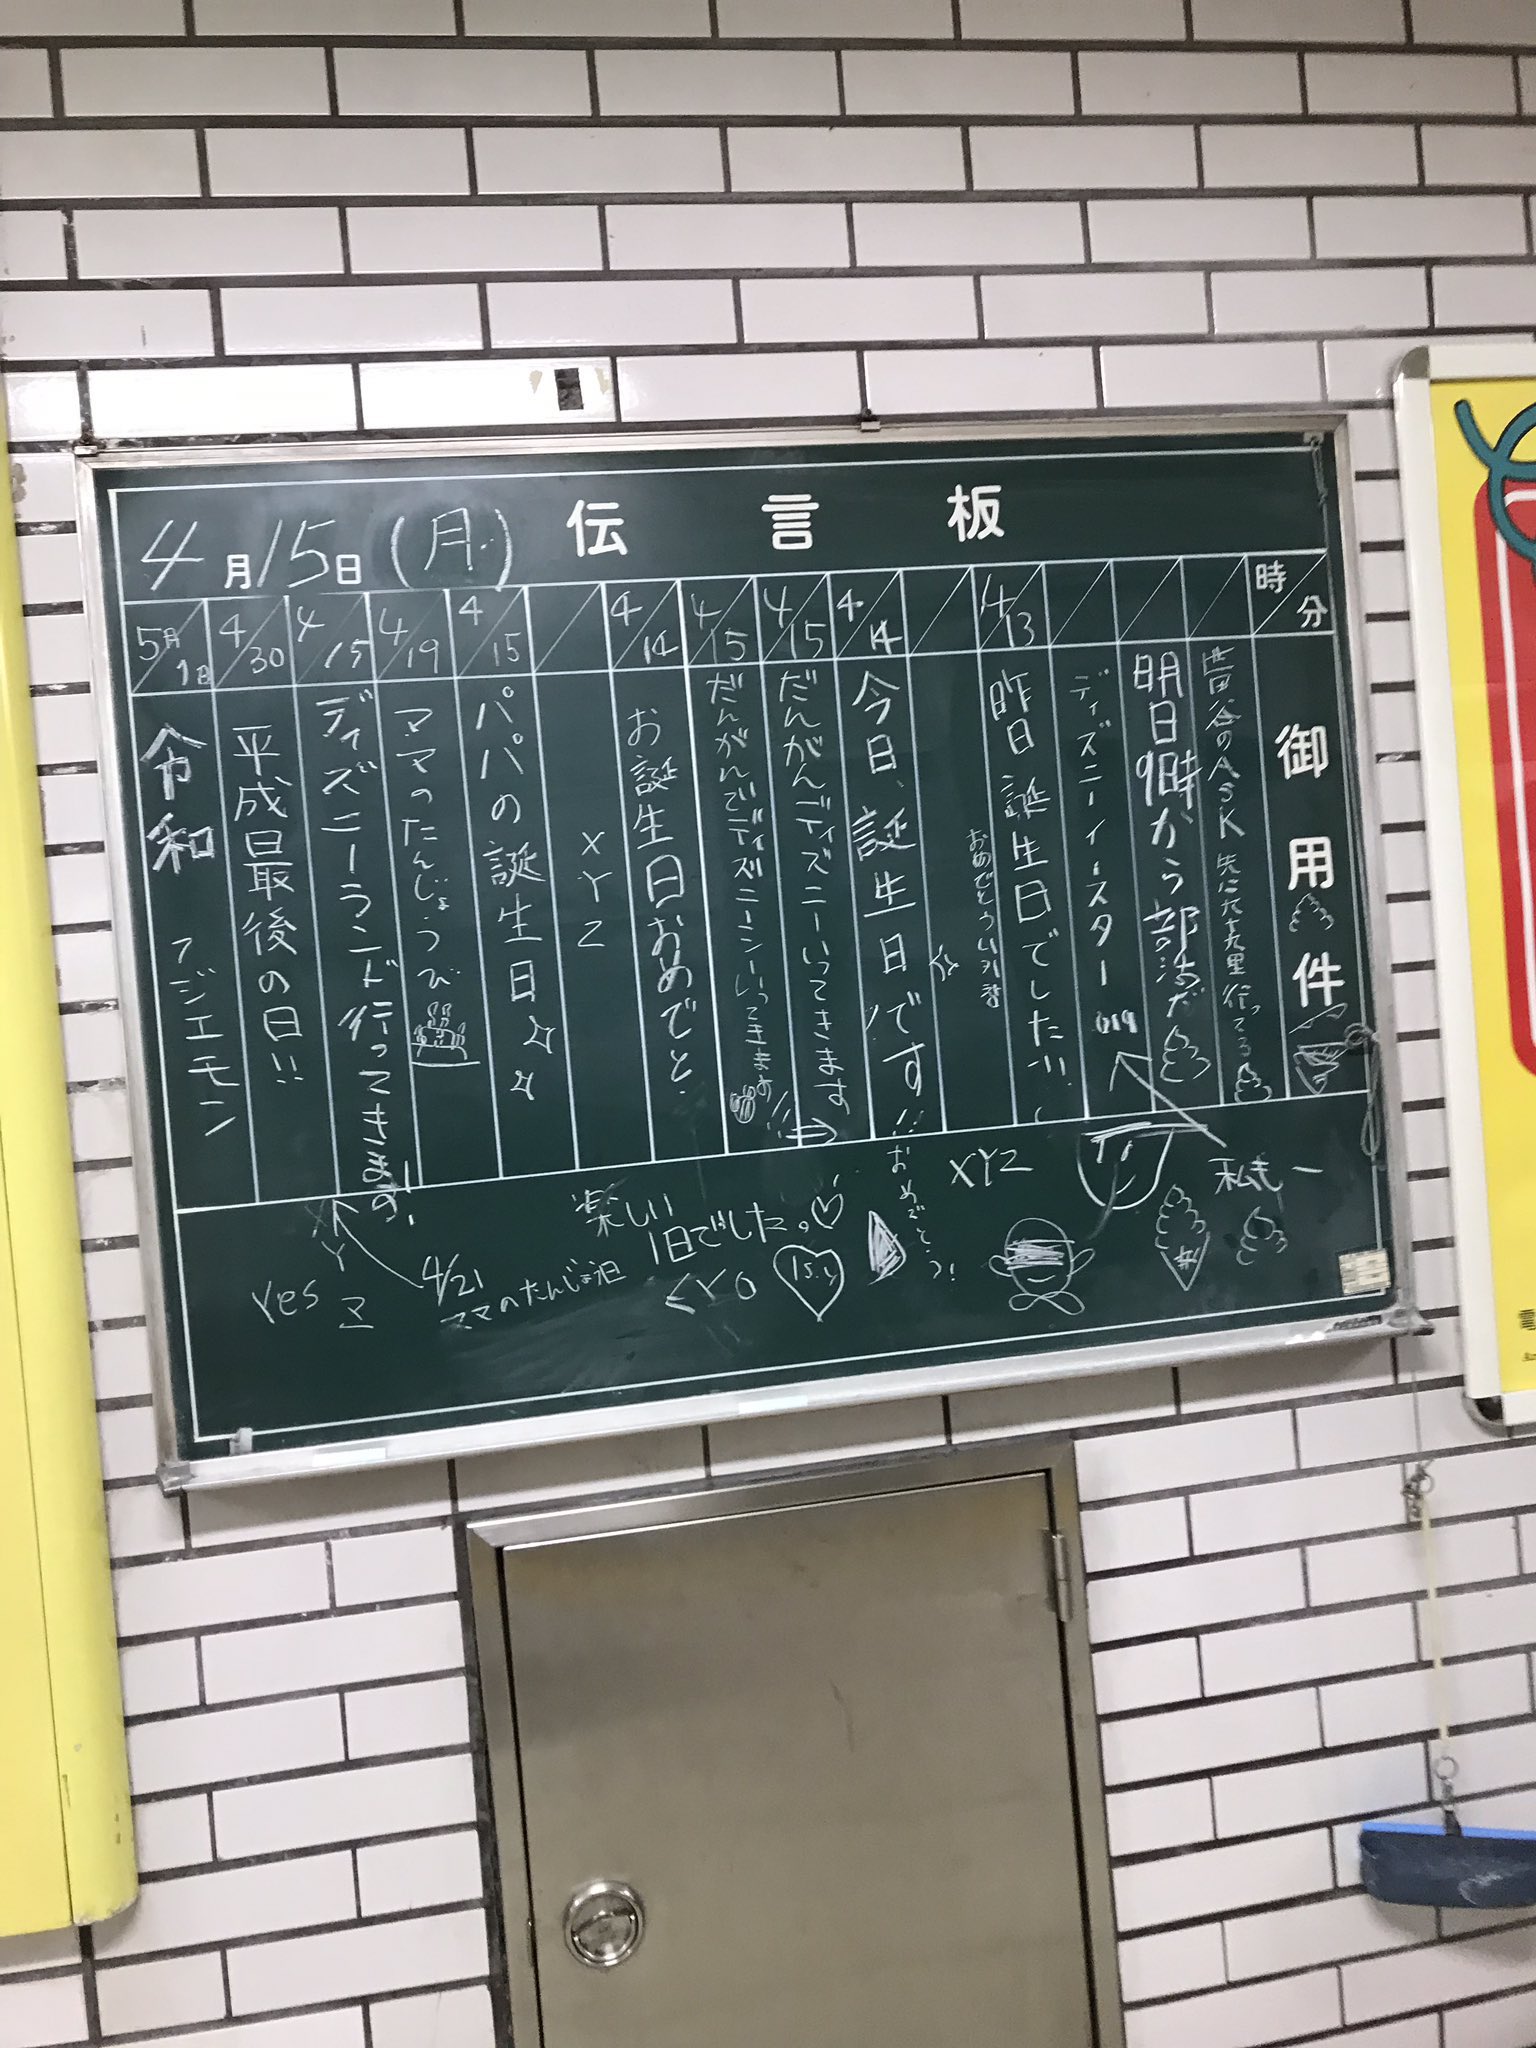 伝言板
4月15日(月)
時分
御用件
世田谷のASK 先に九十九里行ってる
明日9時から部活だ
ディズニーイースター
4/13
昨日誕生日でした!!
おめでとうございます
4/14
今日、誕生日です!!おめでとう!
4/15
だんがんディズニーいってきます
4/15
だんがんでディズニーシーいってきます
4/14
お誕生日おめでと
XYZ
4/15
パパの誕生日
4/19
ママのたんじょうび
4/15
ディズニーランド行ってきます!
4/30
平成最後の日!!
5月1日
令和
私もー
XYZ
楽しい
1日でした。
4/21
ママのたんじょう日
XYZ
Yes